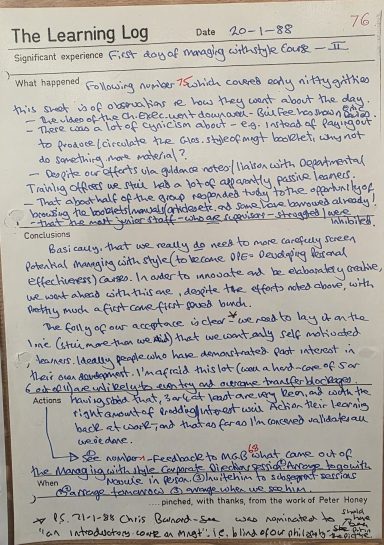 76
The Learning Log Date 20-1-88
Significant experience First day of managing with style Course - II
What happened Following number 75 which covered early nitty gritties
this sheet is of observations re how they went about the day.
- There was a lot of cynicism about - e.g. Instead of paying out
to produce/circulate the Glos. style of mgt booklet, why not
do something more material?
- Despite our efforts via guidance notes/liaison with Departmental
Training Officers we still had a lot of apparently passive learners.
- That about half of the group responded today to the opportunity of
browsing the booklets/manuals/articles etc. and some have borrowed already!
- that the most junior staff - who are supervisors - struggled/were
inhibited.
Conclusions
Basically, that we really do need to more carefully screen
potential managing with style (to become DPE = Developing Personal
Effectiveness) courses. In order to innovate and be elaborately creative,
we went ahead with this one, despite the efforts noted above, with
pretty much a first come first served bunch.
The folly of our acceptance is clear - we need to lay it on the
line (still more than we did) that we want only self motivated
learners. Ideally people who have demonstrated past interest in
their own development. I'm afraid this lot (well a hard-core of 5 or
6 out of 11) are unlikely to even try and overcome transfer blockages.
Actions having said that, 3 or 4 at least are very keen, and with the
right amount of Prodding/Interest will Action their learning
back at work; and that as far as I'm concerned validates all
we've done.
See number - Feedback to M.G.B. what came out of
the Managing with style Corporate Direction session. ① Arrange to go with
When module in person. ② invite him to subsequent sessions
① arrange tomorrow ② arrange when we see him
....pinched, with thanks, from the work of Peter Honey
* P.S. 21-1-88 Chris Barnard - was nominated to
"an introductory course on Mgt": i.e. blind of our philosophy